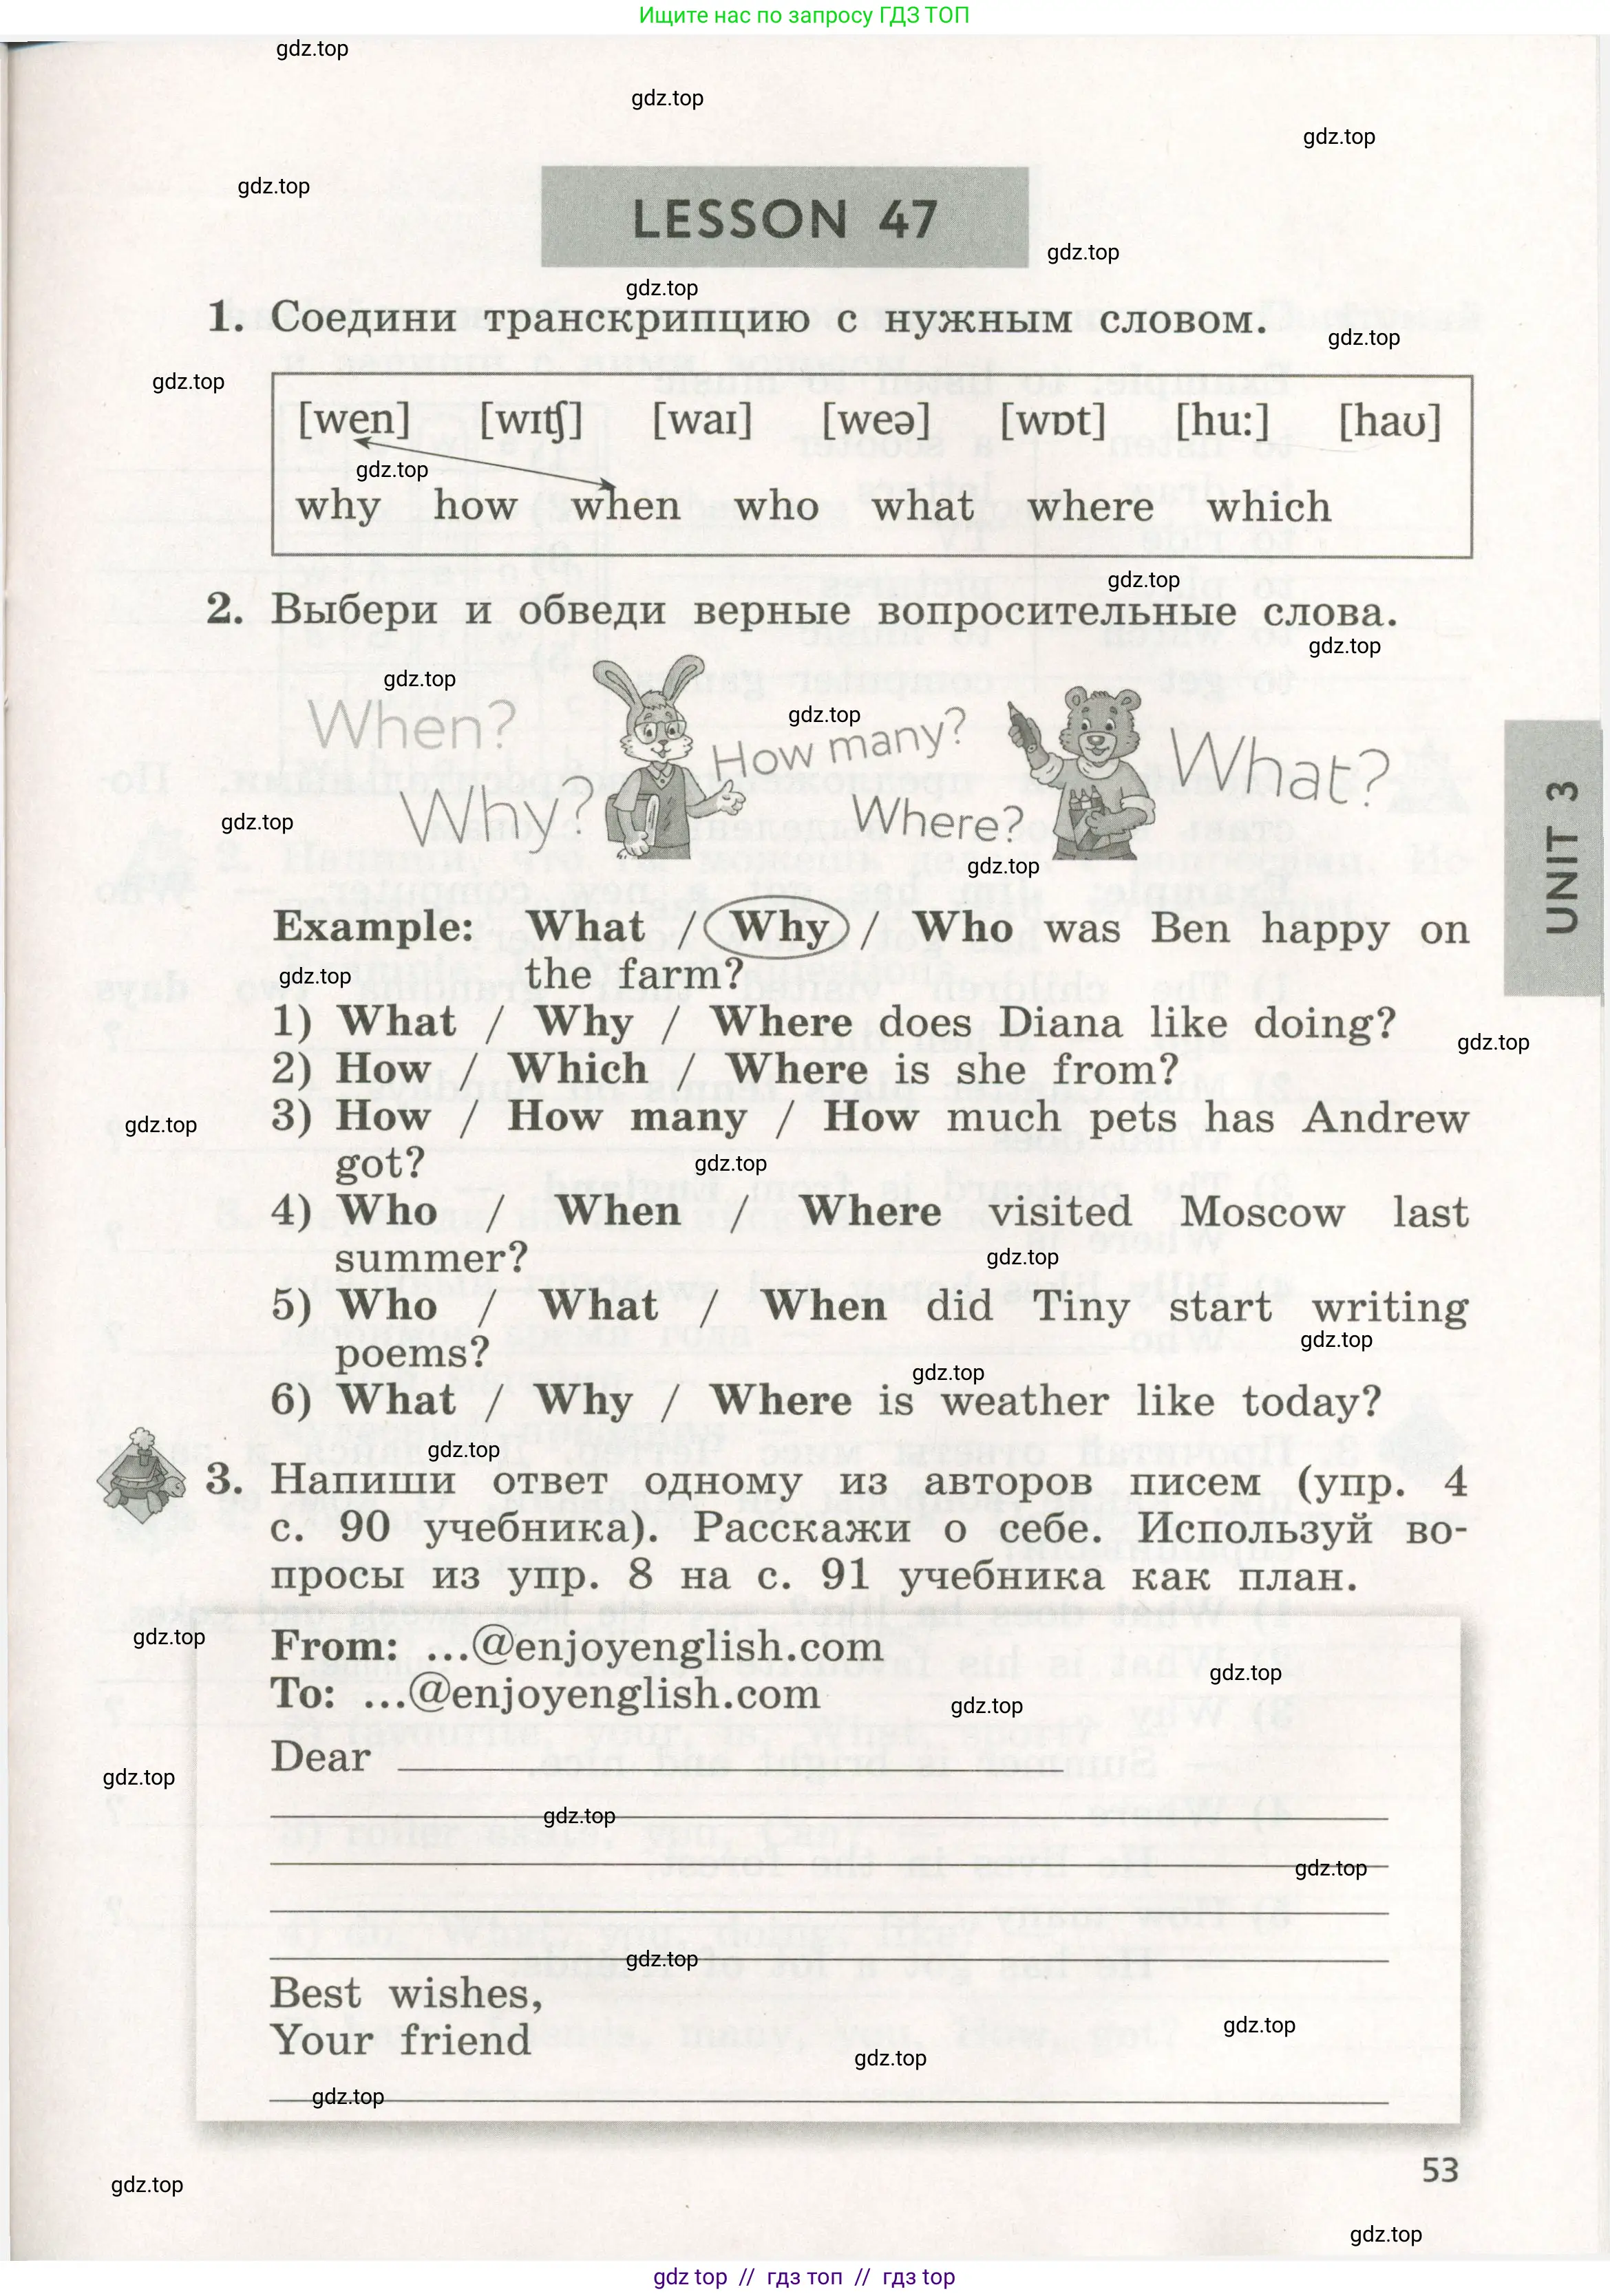 Ищите нас по запросу ГДЗ ТОП
gdz.top
gdz.top
gdz.top
gdz.top
LESSON 47
gdz.top
gdz.top
1. Соедини транскрипцию с нужным словом.
gdz.top
gdz.top
[wen] [wɪʧ] [waɪ] [weə] [wɒt] [hu:] [haʊ]
gdz.top
why how when who what where which
gdz.top
2. Выбери и обведи верные вопросительные слова.
gdz.top
gdz.top
When?
gdz.top
How many?
What?
Why?
Where?
gdz.top
gdz.top
UNIT 3
Example: What / Why / Who was Ben happy on
the farm?
gdz.top
1) What / Why / Where does Diana like doing?
gdz.top
2) How / Which / Where is she from?
3) How / How many / How much pets has Andrew
gdz.top
got?
gdz.top
4) Who / When / Where visited Moscow last
summer?
gdz.top
5) Who / What / When did Tiny start writing
gdz.top
poems?
gdz.top
6) What / Why / Where is weather like today?
gdz.top
3. Напиши ответ одному из авторов писем (упр. 4
с. 90 учебника). Расскажи о себе. Используй во-
просы из упр. 8 на с. 91 учебника как план.
gdz.top
From: ...@enjoyenglish.com
gdz.top
To: ...@enjoyenglish.com
gdz.top
Dear
gdz.top
gdz.top
gdz.top
gdz.top
Best wishes,
gdz.top
Your friend
gdz.top
gdz.top
53
gdz.top
gdz.top
gdz top // гдз топ // гдз top